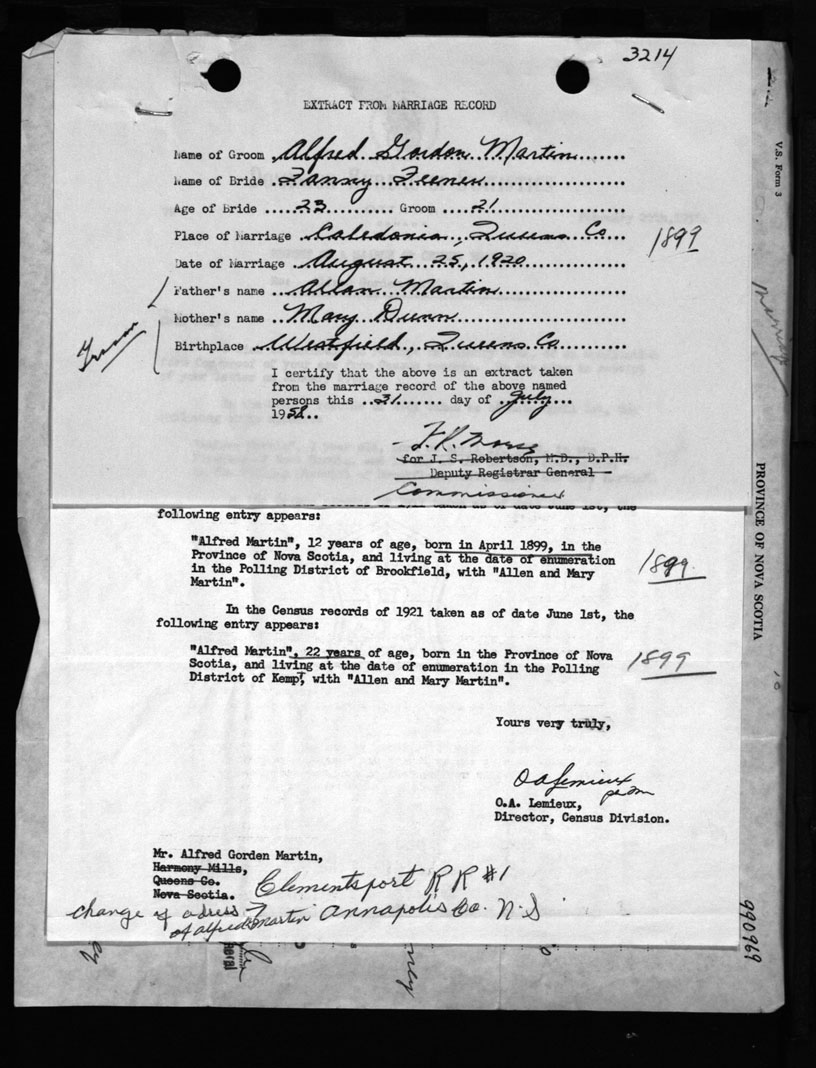 3214
EXTRACT FROM MARRIAGE RECORD
Name of Groom Alfred Gordon Martin
Name of Bride Fanny Feener
Age of Bride 23 Groom 21
Place of Marriage Caledonia, Queens Co
1899
Date of Marriage August 25, 1920
Father's name Allan Martin
Mother's name Mary Dunn
Groom
Birthplace Westfield, Queens Co.
I certify that the above is an extract taken
from the marriage record of the above named
persons this 31 day of July
1958
for J. S. Robertson, M.D., D.P.H.
Deputy Registrar General
Commissioner
following entry appears:
"Alfred Martin", 12 years of age, born in April 1899, in the
Province of Nova Scotia, and living at the date of enumeration
in the Polling District of Brookfield, with "Allen and Mary
Martin".
1899
In the Census records of 1921 taken as of date June 1st, the
following entry appears:
"Alfred Martin", 22 years of age, born in the Province of Nova
Scotia, and living at the date of enumeration in the Polling
District of Kempt, with "Allen and Mary Martin".
1899
Yours very truly,
OA Lemieux
O.A. Lemieux,
Director, Census Division.
Mr. Alfred Gorden Martin,
Harmony Mills,
Queens Co.
Nova Scotia.
Clementsport R R #1
Annapolis Co. N.S
change of adress
of alfred Martin
V.S. Form 3
PROVINCE OF NOVA SCOTIA
990969